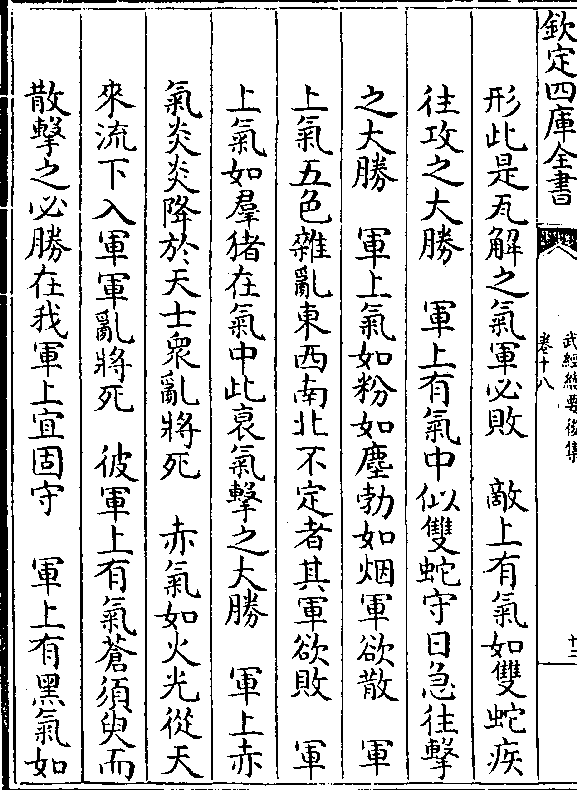 欽定四庫全書
武經總要後集
卷十八
十二
形此是瓦解之氣軍必敗　敵上有氣如雙蛇疾
往攻之大勝　軍上有氣中似雙蛇守日急往擊
之大勝　軍上氣如粉如塵勃如烟軍欲散　軍
上氣五色雜亂東西南北不定者其軍欲敗　軍
上氣如羣猪在氣中此衰氣擊之大勝　軍上赤
氣炎炎降於天士衆亂將死　赤氣如火光從天
來流下入軍軍亂將死　彼軍上有氣蒼須臾而
散擊之必勝在我軍上宜固守　軍上有黑氣如